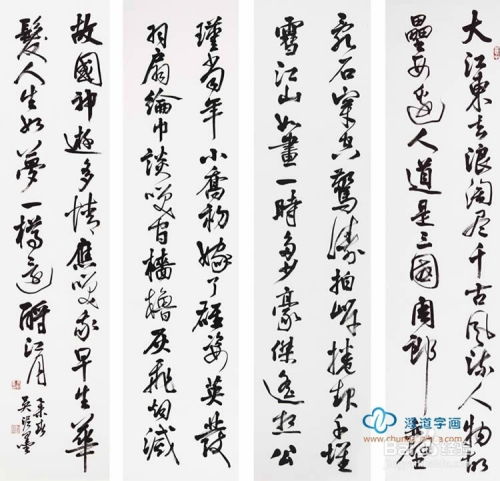 大江東去浪淘尽千古風流人物故
壘西邊人道是三國周郎赤壁
乱石穿空驚濤拍岸捲起千堆
雪江山如畫一時多少豪傑遙想公
瑾當年小喬初嫁了雄姿英發
羽扇綸巾談笑間檣櫓灰飛烟滅
故國神遊多情應笑我早生華
髮人生如夢一樽還酹江月
道字画